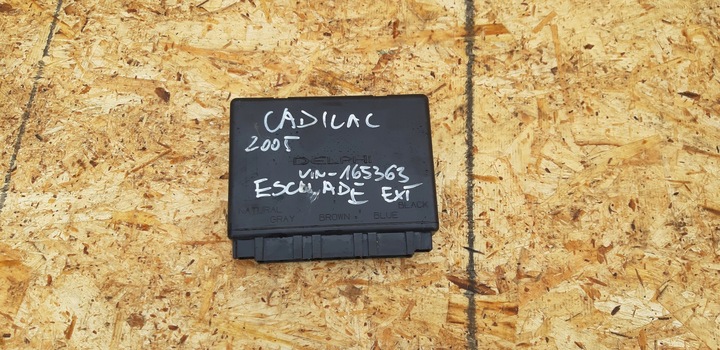 CADILAC
2005
DELPHI
VIN-165363
ESCALADE EXT
NATURAL BLACK
GRAY BROWN BLUE